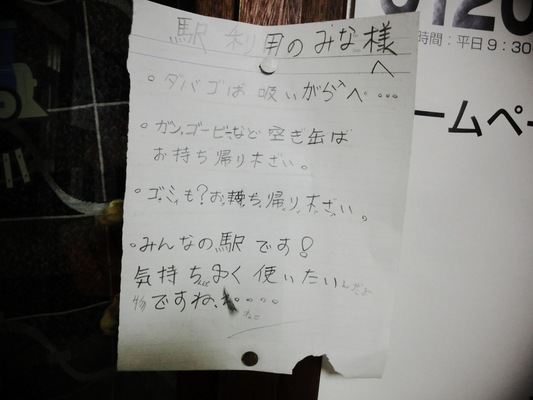 0120
時間：平日9：30-
ームペー
駅 利用のみな様
へ
。タバゴは 吸いがら入へ…
。ガン.コーヒーなど 空き缶は
お持ち帰り下さい。
。ゴミも?お持ち帰り下さい。
。みんなの駅です!
気持ちおく 使いたい
物ですね、ね…